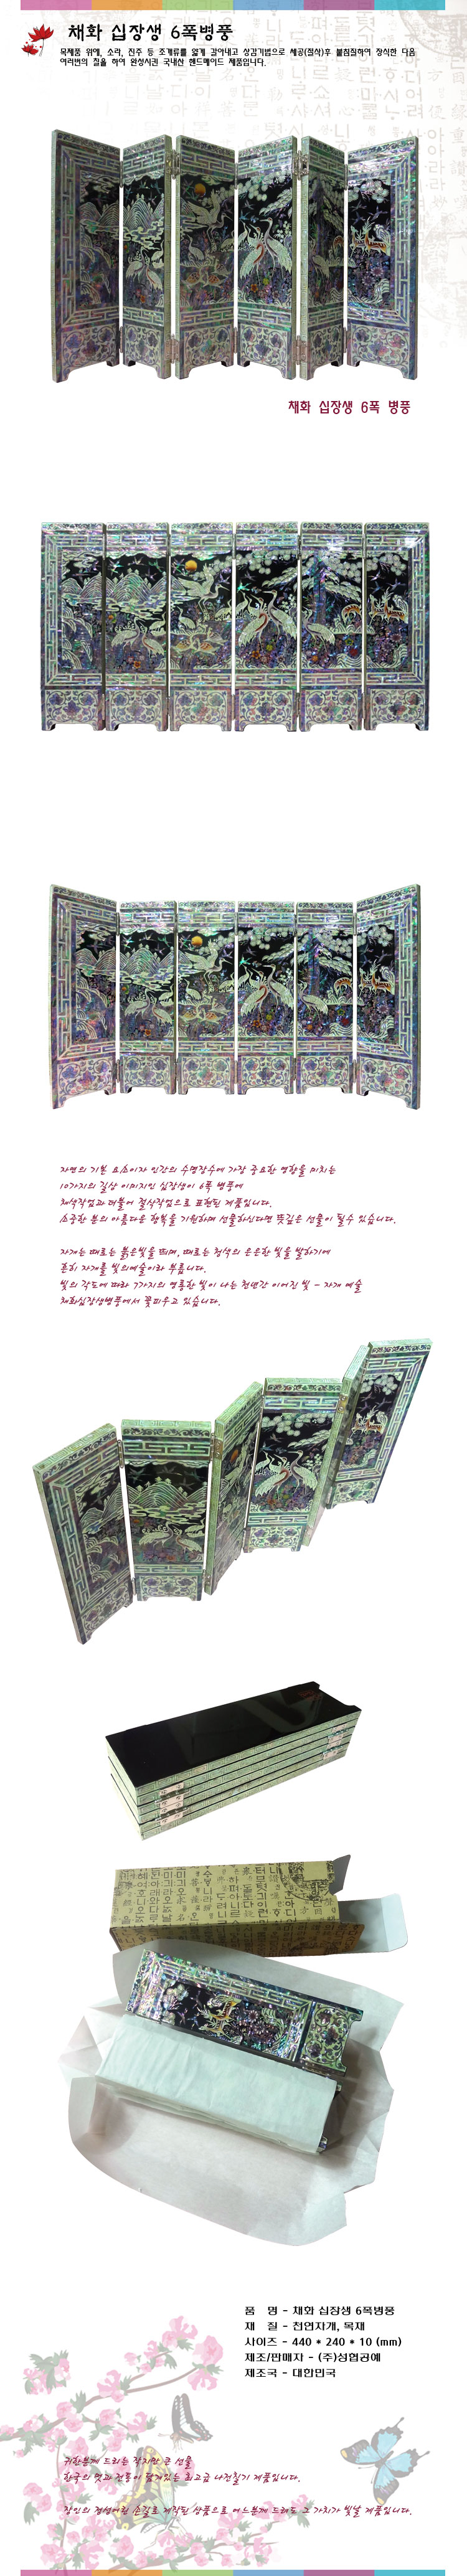 채화 십장생 6폭병풍
목제품 위에, 소라, 진주 등 조개류를 얇게 갈아내고 상감기법으로 세공(절사)후 붙임질하여 장식한 다음
여러번의 칠을 하여 완성시킨 국내산 핸드메이드 제품입니다.
채화 십장생 6폭 병풍
자연의 기본 요소이자 인간의 수명장수에 가장 중요한 영향을 미치는
10가지의 길상 이미지인 십장생이 6폭 병풍에
채색작업과 더불어 절삭작업으로 표현된 제품입니다.
소중한 분의 아름다운 행복을 기원하며 선물하신다면 뜻깊은 선물이 될수 있습니다.
자개는 때로는 붉은빛을 띄며, 때로는 청색의 은은한 빛을 발하기에
흔히 자개를 빛의예술이라 부릅니다.
빛의 각도에 따라 7가지의 영롱한 빛이 나는 천년간 이어진 빛 - 자개 예술
채화십장생병풍에서 꽃피우고 있습니다.
품 명 - 채화 십장생 6폭병풍
재 질 - 천연자개, 목재
사이즈 - 440 * 240 * 10 (mm)
제조/판매자 - (주)성협공예
제조국 - 대한민국
귀한분께 드리는 작지만 큰 선물
한국의 멋과 전통이 담겨있는 최고급 나전칠기 제품입니다.
장인의 정성어린 손길로 제작된 상품으로 어느분께 드려도 그 가치가 빛날 제품입니다.